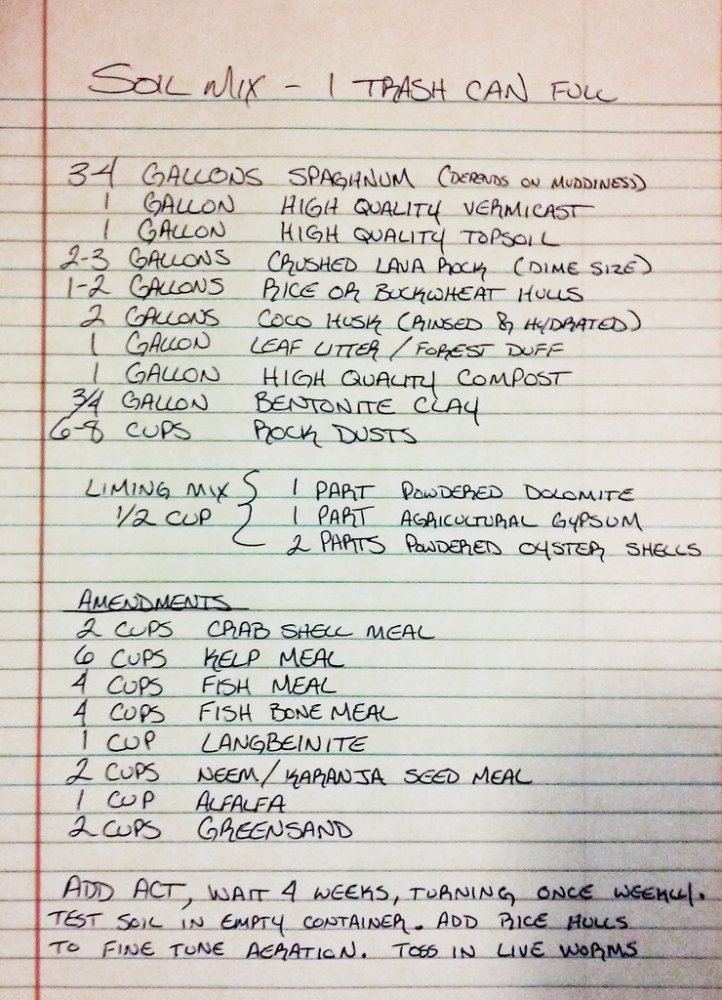 SOIL MIX - 1 TRASH CAN FULL
3-4 GALLONS SPAGHNUM (DEPENDS ON MUDDINESS)
1 GALLON HIGH QUALITY VERMICAST
1 GALLON HIGH QUALITY TOPSOIL
2-3 GALLONS CRUSHED LAVA ROCK (DIME SIZE)
1-2 GALLONS RICE OR BUCKWHEAT HULLS
2 GALLONS COCO HUSK (RINSED & HYDRATED)
1 GALLON LEAF LITTER / FOREST DUFF
1 GALLON HIGH QUALITY COMPOST
3/4 GALLON BENTONITE CLAY
6-8 CUPS ROCK DUSTS
LIMING MIX { 1 PART POWDERED DOLOMITE
1/2 CUP 1 PART AGRICULTURAL GYPSUM
2 PARTS POWDERED OYSTER SHELLS
AMENDMENTS
2 CUPS CRAB SHELL MEAL
6 CUPS KELP MEAL
4 CUPS FISH MEAL
4 CUPS FISH BONE MEAL
1 CUP LANGBEINITE
2 CUPS NEEM/KARANJA SEED MEAL
1 CUP ALFALFA
2 CUPS GREENSAND
ADD ACT, WAIT 4 WEEKS, TURNING ONCE WEEKLY.
TEST SOIL IN EMPTY CONTAINER. ADD RICE HULLS
TO FINE TUNE AERATION. TOSS IN LIVE WORMS